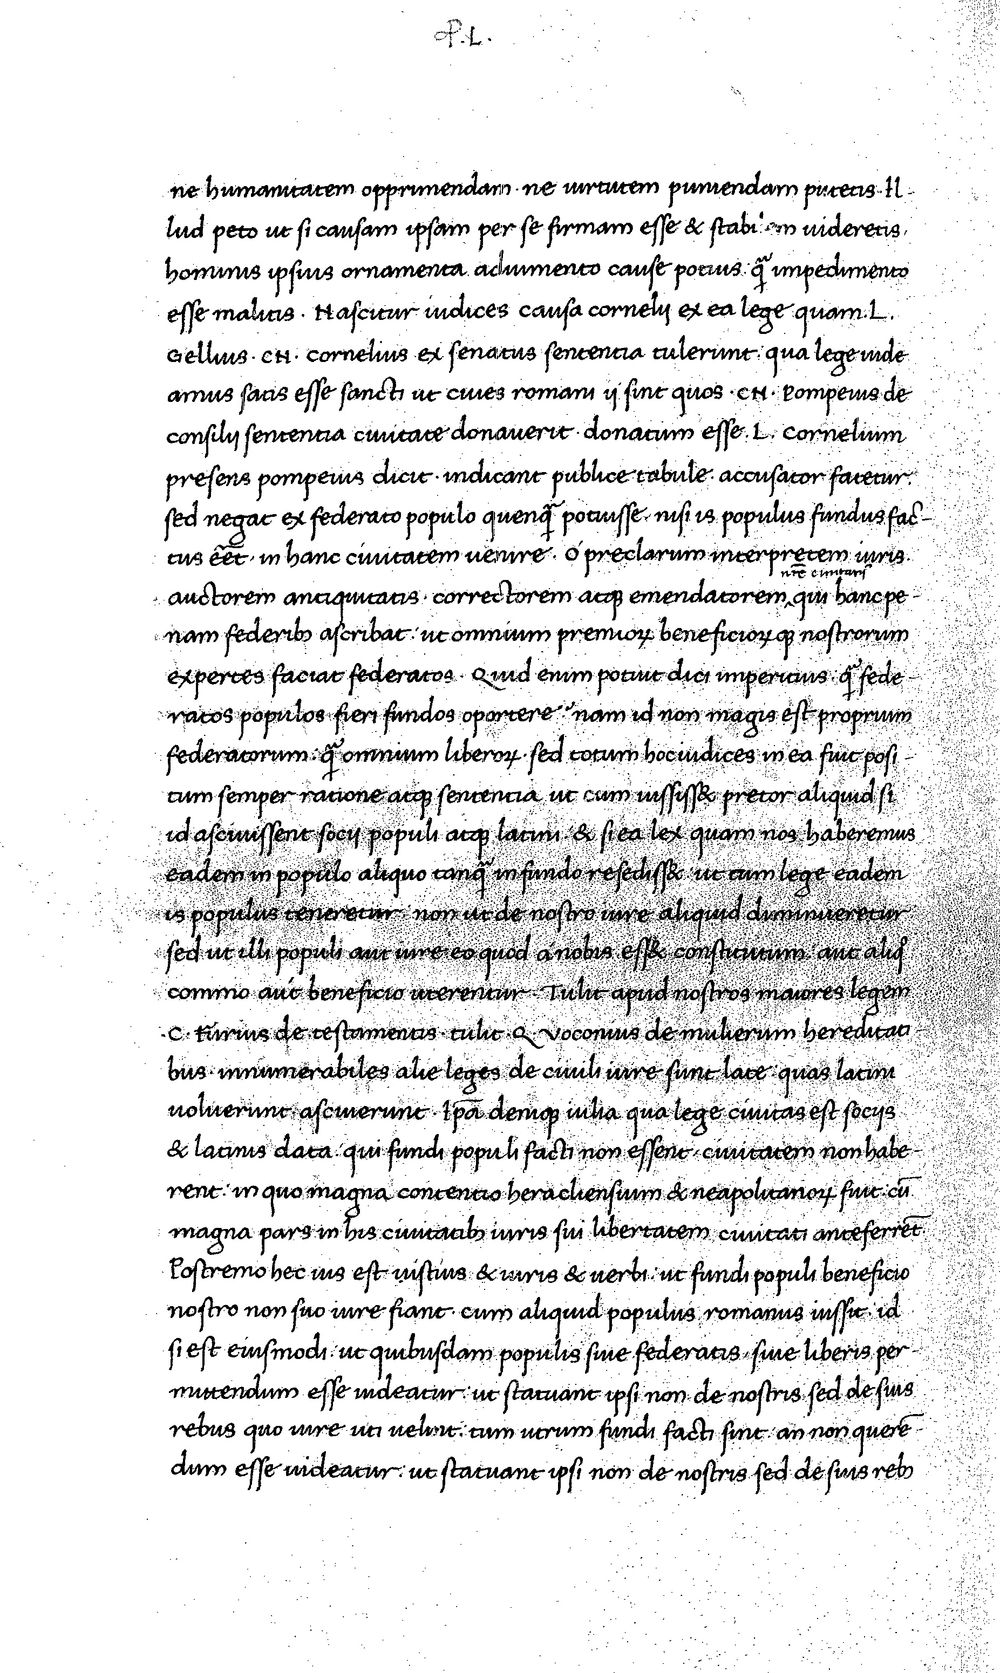 P.L.
ne humanitatem opprimendam · ne uirtutem puniendam putetis · Il-
lud peto ut si causam ipsam per se firmam esse & stabilem uideretis,
hominis ipsius ornamenta adiumento cause potius q̃ impedimento
esse malitis · Nascitur iudices causa cornelij ex ea lege quam · L ·
Gellius · CN · cornelius ex senatus sententia tulerunt : qua lege uide
amus satis esse sancti ut ciues romani ij sint quos · CN · Pompeius de
consilij sententia ciuitate donauerit · donatum esse · L · cornelium
presens pompeius dicit · indicant publice tabule · accusator fatetur :
sed negat ex federato populo quenq̃ potuisse · nisi is populus fundus fac-
tus eēt · in hanc ciuitatem uenire · O preclarum interpretem iuris ·
auctorem antiquitatis · correctorem atqꝫ emendatorem nr̄e ciuitatis qui hanc pe-
nam federibꝫ ascribat : ut omnium premioꝝ beneficioꝝqꝫ nostrorum
expertes faciat federatos · Quid enim potuit dici imperitius q̃ fede-
ratos populos fieri fundos oportere · nam id non magis est proprium
federatorum : q̃ omnium liberoꝝ · sed totum hoc iudices in ea fuit posi-
tum semper ratione atqꝫ sententia ut cum iussiss& pretor aliquid si
id asciuissent socij populi atqꝫ latini & si ea lex quam nos haberemus
eadem in populo aliquo tanq̃ in fundo resediss& ut tum lege eadem
is populus teneretur · non ut de nostro iure aliquid diminueretur
sed ut illi populi aut iure eo quod a nobis ess& constitutum · aut aliq̊
commo aut beneficio uterentur · Tulit apud nostros maiores legem
· C · Furius de testamentis · tulit Q Voconius de mulierum hereditati-
bus · innumerabiles alie leges de ciuili iure sunt late : quas latini
uoluerunt asciuerunt · Ip̄a deniqꝫ iulia qua lege ciuitas est socijs
& latinis data : qui fundi populi facti non essent · ciuitatem non habe-
rent : in quo magna contentio heracliensium & neapolitanoꝝ fuit : cū
magna pars in his ciuitatibꝫ iuris sui libertatem ciuitati anteferret̄
Postremo hec ius est iustius & iuris & uerbi : ut fundi populi beneficio
nostro non suo iure fiant · cum aliquid populus romanus iussit · id
si est eiusmodi : ut quibusdam populis siue federatis · siue liberis per-
mittendum esse uideatur : ut statuant ipsi non de nostris sed de suis
rebus quo iure uti uelint : tum utrum fundi facti sint · an non querē-
dum esse uideatur : ut statuant ipsi non de nostris sed de suis rebꝫ